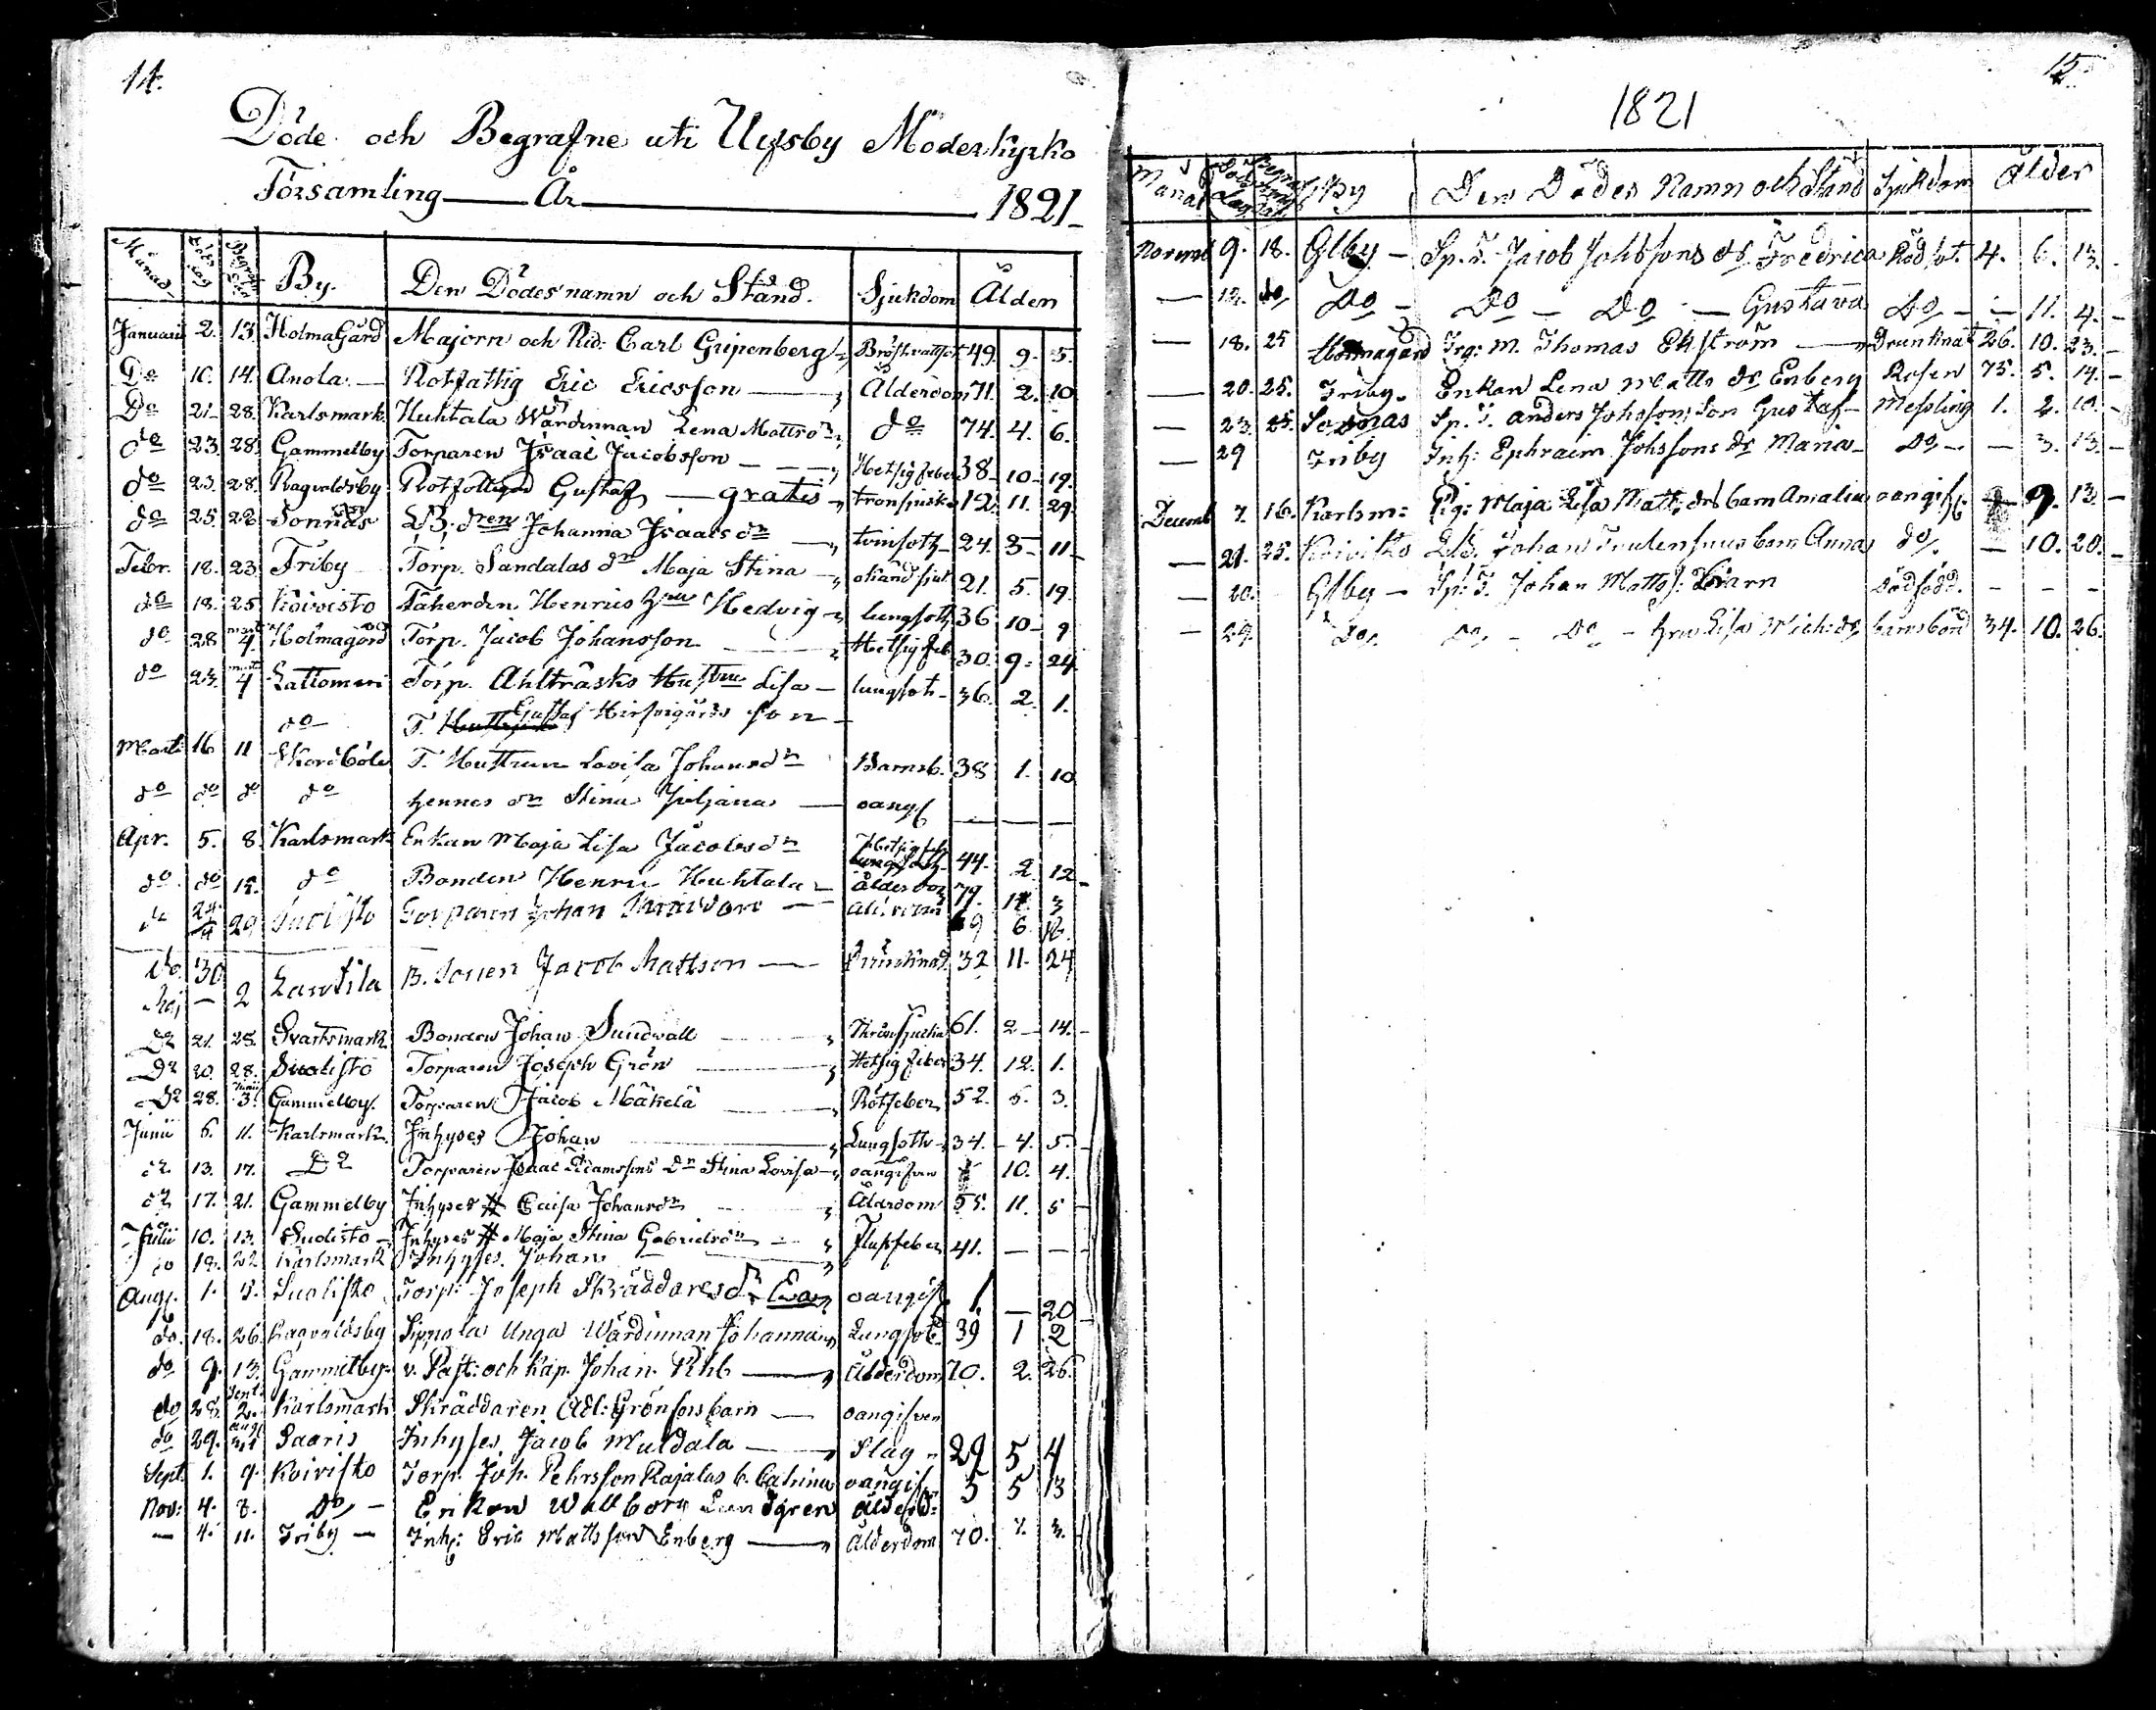 14.
Döde och Begrafne uti Ulfsby Moderkyrko
Församling — År — 1821
Månad Döds dag Begraf By. Den Dödes namn och Stånd. Sjukdom Ålder
Januarii 2. 13. HolmaGård Majorn och Rid: Carl Gripenberg 49. 9. 5.
Do 10. 14. Anola — Rotfattig Eric Ericsson — Ålderdom 71. 2. 10
Do 21. 28. Karlsmark. Huhtala Wärdinnan Lena Mattsdr do 74. 4. 6.
do 23. 28. Gammelby Torparen Isaac Jacobsson — Hetsig feber 38. 10. 19.
do 23. 28. Ragvaldsby Gustaf — gratis 12. 11. 29.
do 25. 28 Sonnäs B. dren Johanna Isaacs dr tvinsoth 24. 3. 11.
Febr. 18. 23 Friby Torp. Sandalas dr Maja Stina 21. 5. 19.
do 18. 25 Koivisto Fäherden Henrics Hru Hedvig lungsoth 36 10 9
do 28 4. Holmagård Torp. Jacob Johansson Hetsig feb. 30. 9. 24
do 23. 4 Lattomeri Torp. Ahlträsks Hustru Lisa — lungsot 36. 2. 1.
do T. Gustaf son
Marti 16 11 T. Huttrun Lovisa Johansdr Barnsb. 38 1. 10
do do do do hennes dr Stina Juljana — oangf — — —
Apr. 5. 8. Karlsmark Enkan Maja Lisa Jacobsdr Hetsig feb 44. 2. 12
do do 12. do Bonden Henric Huhtala — Ålderdom 79. 11. 3
do 24/4 29 Suolisto Torparen Johan — 9 6
do 30
Maj — 2 Lawtila B. Sonen Jacob Mattson — Drunknad 32 11. 24
Do 21. 28. Svartsmark Bonden Johan Sundvall 61. 2 14.
Do 20. 28. Suolisto Torparen Joseph Grön Hetsig feber 34. 12. 1.
Do 28. Junii 3. Gammelby. Torparen Jacob Mäkelä Rötfeber 52. 5. 3.
Junii 6. 11. Karlsmark. Inhyses Johan Lungsoth 34. 4. 5.
do 13. 17. Do Torparen Isaac Adamssons Dr Stina Lovisa oangifven 10. 4.
do 17. 21. Gammelby Inhyses # Caisa Johansdr Ålderdom 55. 11. 5
Julii 10. 13. Suolisto Inhyses # Maja Stina Gabrielsdr 41. — —
do 18. 22 Karlsmark Inhyses Johan
Aug. 1. 5. Suolisto Torp: Joseph Skräddares dr Eva oangif 1 — 20
do. 18. 26. Ragvaldsby Sipnola Unga Wärdinnan Johanna Lungsot 39 1 2
do 9. 13. Gammelby v. Past: och Kap. Johan — Ålderdom 70. 2. 26.
do 28. Sept: 2. Karlsmark Skräddaren Adl: Grönfors barn — oangifven
do 29. Saaris Inhyses Jacob Muldala — Slag 29 5 4
Sept. 1. 9. Koivisto Torp. Joh. Pehrsson Rajalas b. Catrina oangif 3 5 13
Nov: 4. 8. Do — Enkan Wallborg Lundgren Ålderd:
— 4. 11. Friby — Inh: Eric Mattsson Enberg — Ålderdom 70. 7. 3.
15.
1821
Månad By Den Dödes Namn och Stånd Sjukdom Ålder
Novemb 9. 18. Glby — Sp. T. Jacob Johssons dr Fredrica Rödsot. 4. 6. 13.
— 12. do Do — Do — Do — Gustava Do — — 11. 4.
— 18. 25 Holmagård Trg: M. Thomas Ekström — Drunknat 26. 10. 23.
— 20. 25. Friby. Enkan Lena Matts dr Enberg Rosen 75. 5. 14.
— 23. 25. Sonnäs Sp. T. Anders Johssons Son Gustaf — Messling 1. 2. 10.
— 29 Friby Inh: Ephraim Johssons dr Maria — Do — — 3. 13.
Decemb 7. 16. Karlsm: Pig: Maja Lisa Matts drs barn Amalia oangif. 9. 13
— 21. 25. Koivisto Johan barn Anna do. — 10. 20.
— 20. Glby — Sp: T. Johan Mattss: Barn Dödfödd. — — —
— 29. Do. Do — Do — hru Lisa Mich: dr barnsbörd 34. 10. 26.